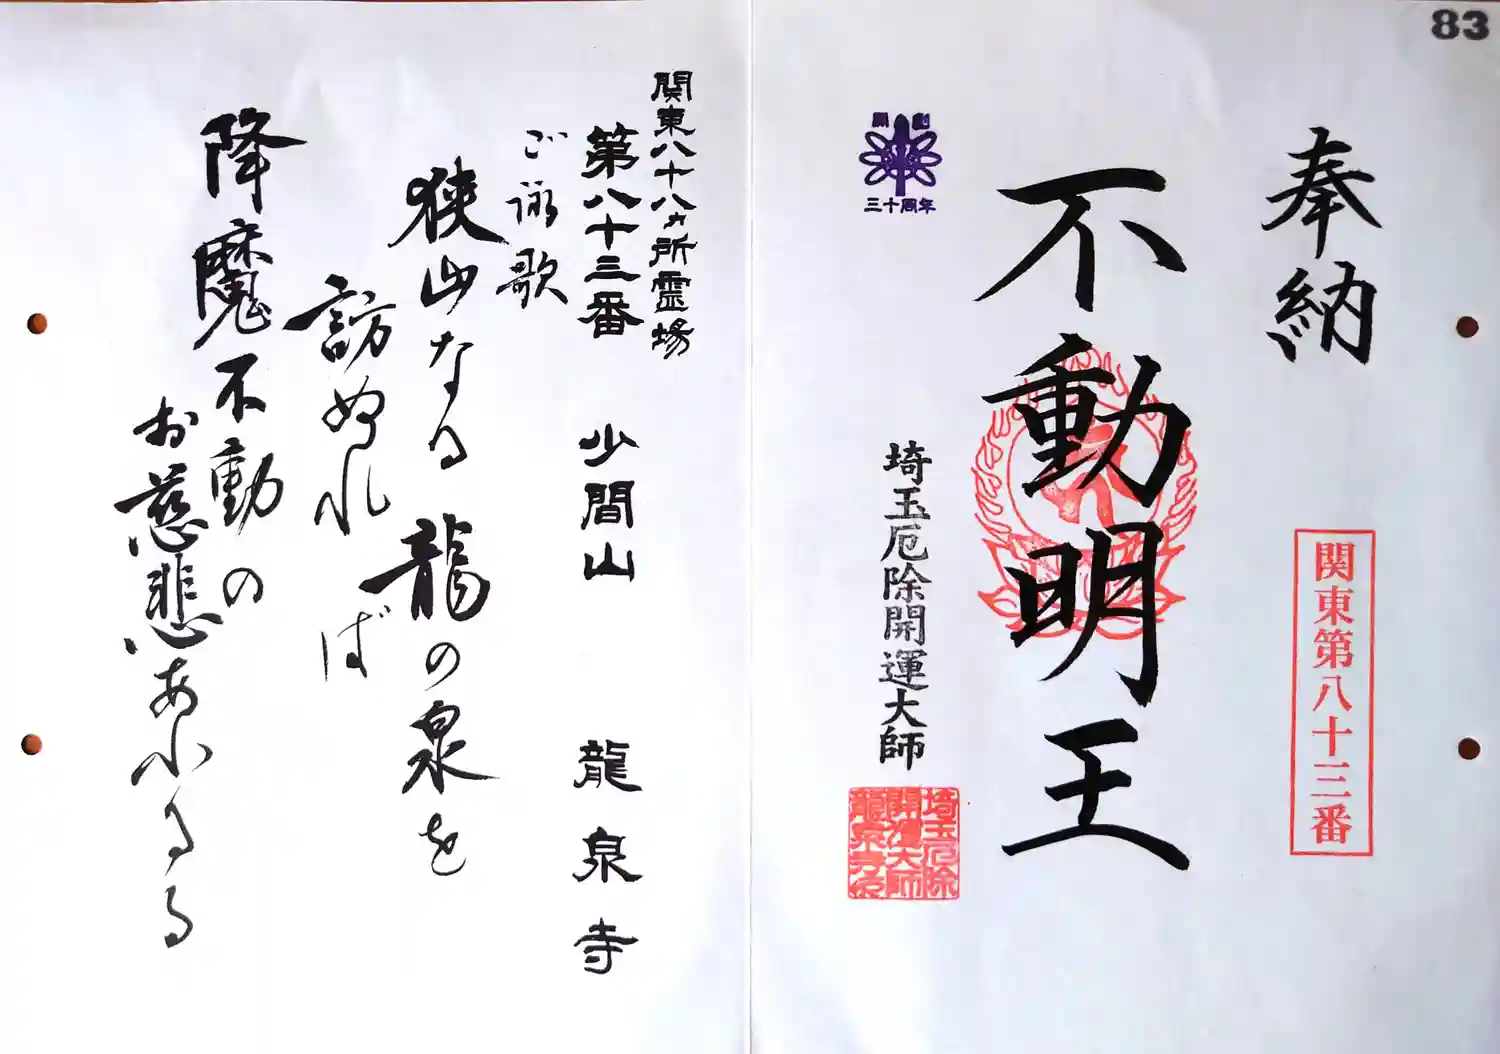 83
奉納
関東第八十三番
不動明王
開創
三十周年
埼玉厄除開運大師
埼玉厄除
開運大師
龍泉寺印
関東八十八ヵ所霊場
第八十三番 少間山 龍泉寺
ご詠歌
狭山なる龍の泉を
訪ぬれば
降魔不動の
お慈悲あふるる